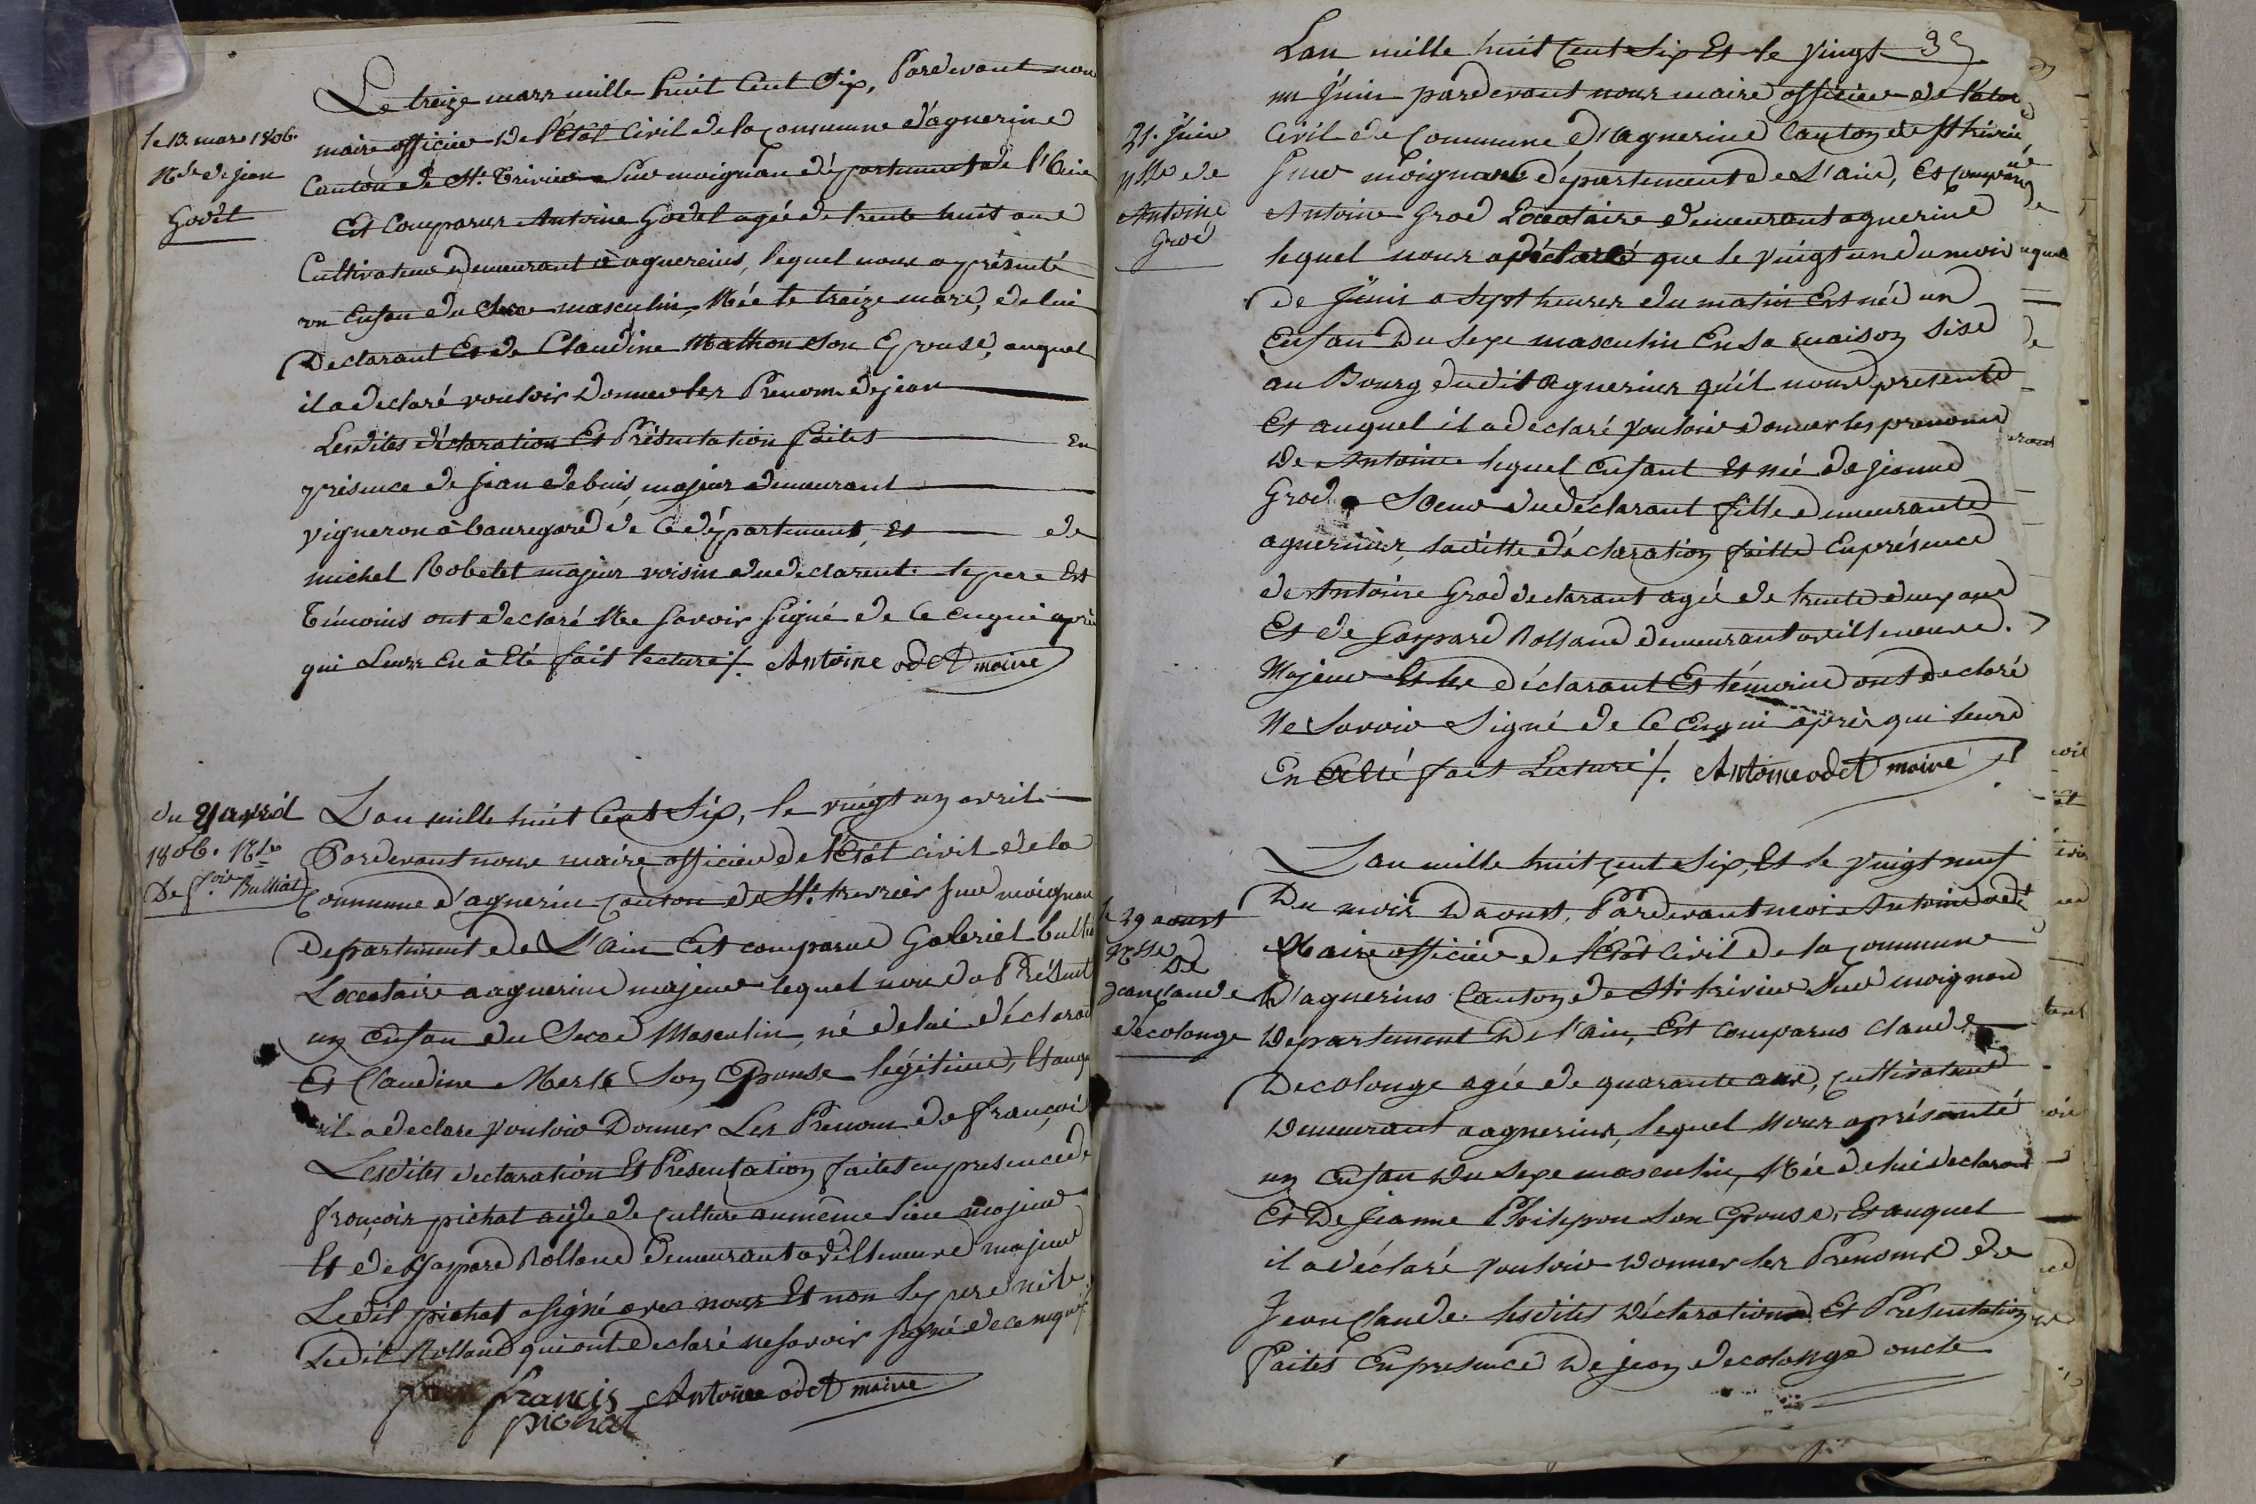 le 13. mars 1806.
Nce de jean
Godet
Le treize mars mille huit Cent Six, Pardevant nous
maire officier de l'État Civil de la Commune d'agnerins
Canton de St. Trivier Sur moignan département de l'Ain
Est Comparus Antoine Godet agée de trente huit ans
Cultivateur demeurant à agnereins, lequel nous a présenté
un Enfan du Sexe masculin, Née le treize mars, de lui
Déclarant Et de Claudine Mathon Son Epouse, auquel
il a declaré vouloir Donner les Prenom de jean
Lesdites déclaration Et Présentation faites en
présence de jean debuis, majeur demeurant
vigneron à bauregard de Ce département, Et de
michel Robelet majeur voisin du declarent. le pere Est
Témoins ont declaré Ne Savoir Signé de Ce enqui après
qui Leurs En à Eté fait lecture ./. Antoine odet maire
du 21 avril
1806. Nce
De fois Bulliat
L'an mille huit Cent Six, le vingt un avril
Pardevant nous maire officier de l'Etat civil de la
Commune d'agnerin Canton de St. trevrier Sur moignan
département de L'Ain Est comparus Gabriel bullia
Locataire a agnerins majeur lequel nous a Présent
un enfan du Sexe Masculin, né de lui déclaran
Et Claudine Merle Son Epouse légitime, Et auq
il a declare vouloir Donner Les Prenom de françois
Lesdites declaration Et Presentation faites en presence de
françois pichat aide de culture au même lieu majeur
Et de gaspard Rolland demeurant a villeneuve majeur
Ledit pichat a Signé avec nous Et non le pere ni le
Ledit Rolland qui ont declaré ne Savoir Signé de ce requis ./.
francis Antoine odet maire
pichat
35
21. Juin
Nsse de
Antoine
Grod
Lan mille huit Cent Six Et le vingt
un Juin pardevant nous maire officier de l'état
Civil de Commune d'agnerins Canton de St trivier
Sur moignans département de L'ain, Est comparus
Antoine Grod Locataire demeurant agnerins
lequel nous a déclaré que le vingt un du mois
de Juin a Sept heures du matin Est né un
Enfan Du Sexe masculin En Sa maison Sise
au Bourg dudit agnerins qu'il nous presente
Et auquel il a déclaré vouloir donner les prenoms
de Antoine lequel enfant Est né de jeanne
Grod Soeur du déclarant fille demeurante
agnerins, ladite déclaration faitte En présence
de Antoine Grod declarant agée de trente deux ans
Et de Gaspard Rolland demeurant a villeneuve.
Majeur Et les déclarant Et témoins ont declaré
Ne Savoir Signé de Ce Enqui après qui leurs
En a Eté fait Lecture ./. Antoine odet maire
le 29 aoust
Nsse
De
Jean Claude
decolonge
L'an mille huit cent Six, Et le vingt neuf
Du mois Daoust, Pardevant moi Antoine odet
Maire officier de l'Etat Civil de la Commune
D'agnerins Canton de St. trivier Sur moignan
Département De l'ain, Est Comparus Claude
Decolonge agée de quarante ans, cultivateur
demeurant a agnerins, lequel Nous a présenté
un enfan du Sexe masculin, Née de lui declarant
Et De Jeanne Philipon Son Epouse, Et auquel
il a déclaré vouloir Donner les Prenoms de
Jean Claude lesdites Déclarations Et Presentation
faites En presence de jean decolonge oncle